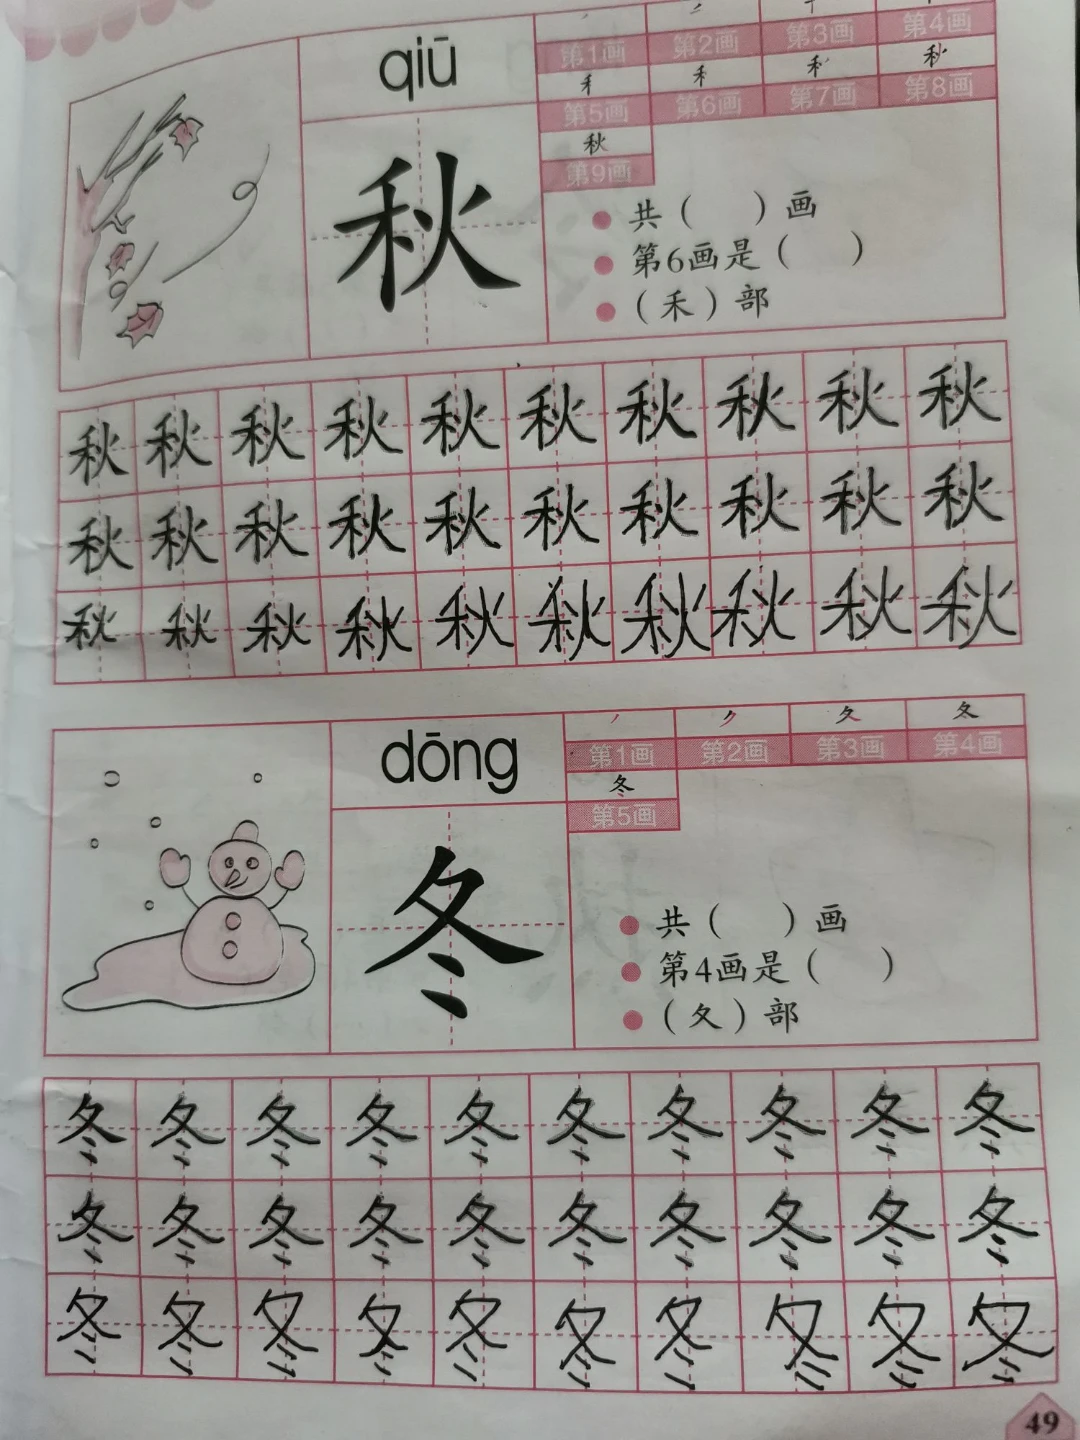 qiū
第1画 第2画 第3画 第4画
禾 禾 秋
第5画 第6画 第7画 第8画
秋
第9画
秋
共（ ）画
第6画是（ ）
（禾）部
秋 秋 秋 秋 秋 秋 秋 秋 秋 秋
秋 秋 秋 秋 秋 秋 秋 秋 秋 秋
秋 秋 秋 秋 秋 秋 秋 秋 秋 秋
dōng
丿 ク 夂 冬
第1画 第2画 第3画 第4画
冬
第5画
冬
共（ ）画
第4画是（ ）
（夂）部
冬 冬 冬 冬 冬 冬 冬 冬 冬 冬
冬 冬 冬 冬 冬 冬 冬 冬 冬 冬
冬 冬 冬 冬 冬 冬 冬 冬 冬 冬
49